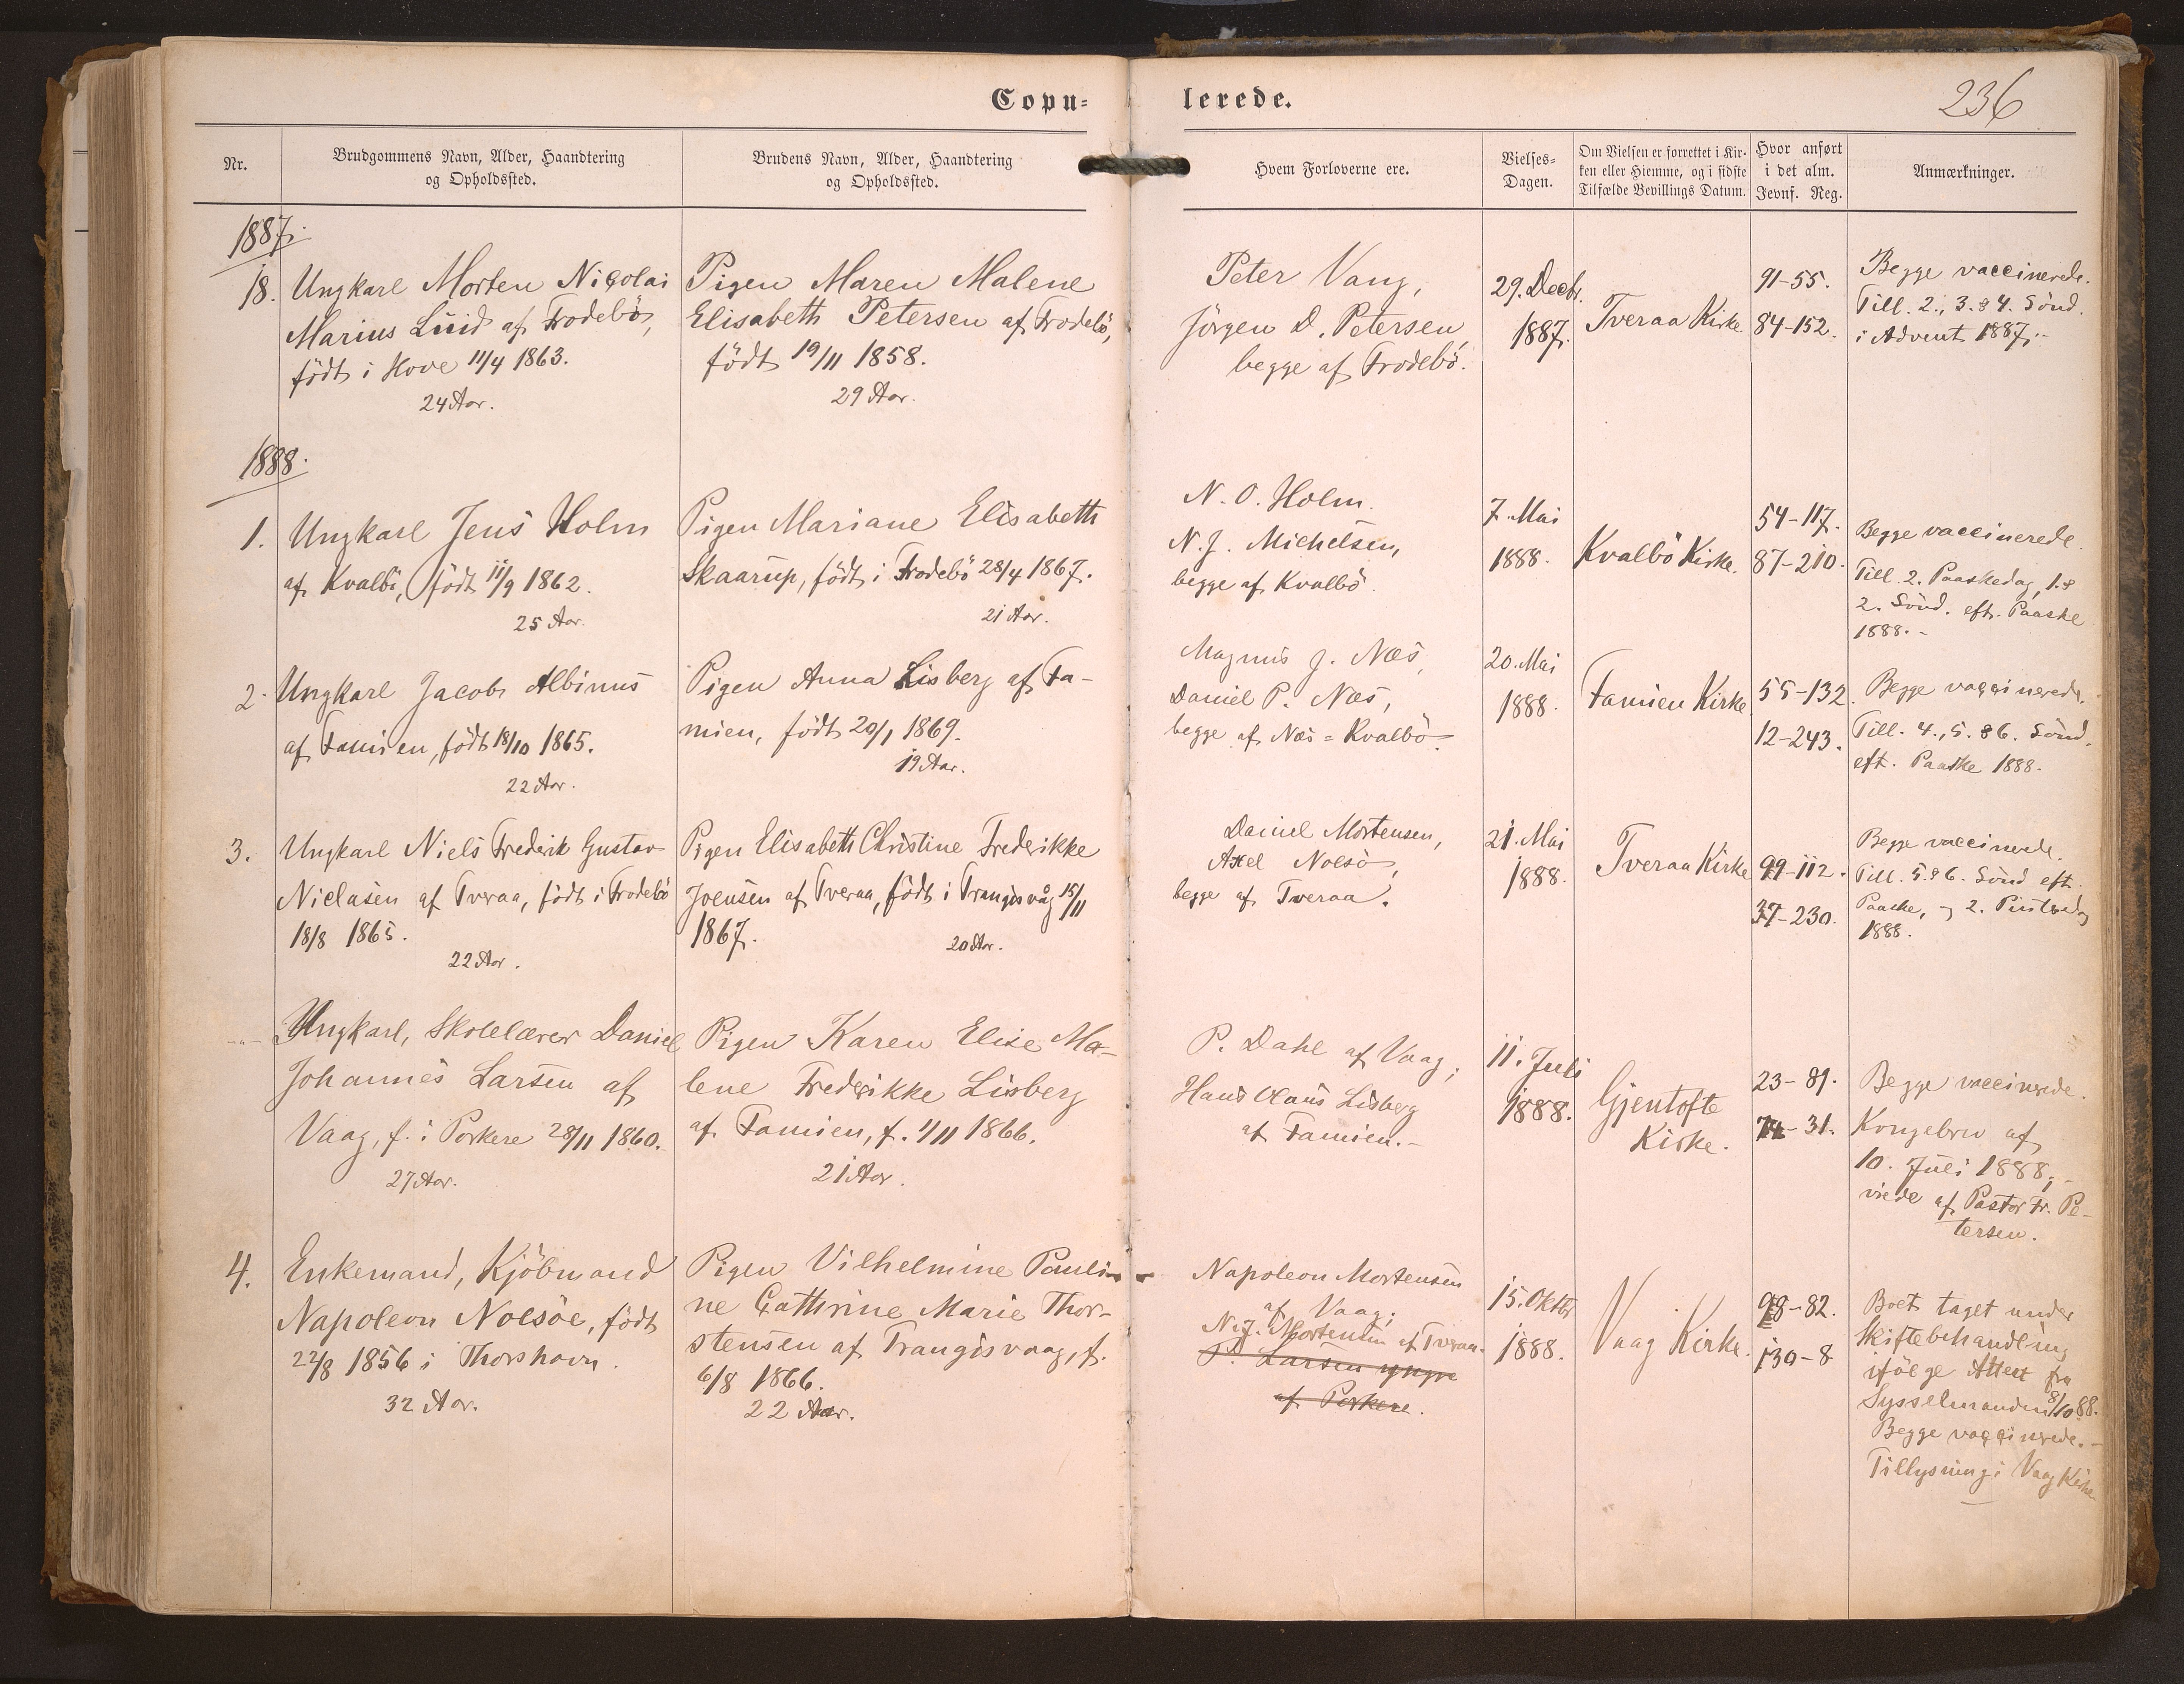 Copu-
lerede.
236
Nr.
Brudgommens Navn, Alder, Haandtering
og Opholdssted.
Brudens Navn, Alder, Haandtering
og Opholdssted.
Hvem Forloverne ere.
Vielses-
Dagen.
Om Vielsen er forrettet i Kir-
ken eller Hiemme, og i sidste
Tilfælde Bevillings Datum.
Hvor anført
i det alm.
Jevnf. Reg.
Anmærkninger.
1887.
18.
Ungkarl Morten Nicolai
Marius Luid af Frodebö,
födt i Hove 11/4 1863.
24 Aar.
Pigen Maren Malene
Elisabeth Petersen af Frodebö,
födt 19/11 1858.
29 Aar.
Peter Vang,
Jörgen D. Petersen,
begge af Frodebö.
29. Decbr.
1887.
Tveraa Kirke
91-55.
84-152.
Begge vaccinerede.
Till. 2., 3. & 4. Sönd.
i Advent 1887.-
1888.
1.
Ungkarl Jens Holm
af Kvalbö, födt 11/9 1862.
25 Aar.
Pigen Mariane Elisabeth
Skaarup, födt i Frodebö 28/4 1867.
21 Aar.
N. O. Holm.
N. J. Michelsen,
begge af Kvalbö.
7. Mai
1888.
Kvalbö Kirke.
54-117.
87-210.
Begge vaccinerede.
Till. 2. Paaskedag, 1. &
2. Sönd. eft. Paaske
1888.-
2.
Ungkarl Jacob Albinus
af Famien, födt 18/10 1865.
22 Aar.
Pigen Anna Lisberg af Fa-
mien, födt 20/1 1869.
19 Aar.
Magnus J. Næs,
Daniel P. Næs,
begge af Næs=Kvalbö.
20. Mai
1888.
Famien Kirke.
55-132.
12-243.
Begge vaccinerede.
Till. 4., 5. & 6. Sönd.
eft. Paaske 1888.
3.
Ungkarl Niels Frederik Gustav
Niclasen af Tveraa, födt i Frodebö
18/8 1865.
22 Aar.
Pigen Elisabeth Christine Frederikke
Joensen af Tveraa, födt i Trangisvåg 15/11
1867.
20 Aar.
Daniel Mortensen,
Axel Nolsö,
begge af Tveraa.
21. Mai
1888.
Tveraa Kirke
99-112.
37-230.
Begge vaccinerede.
Till. 5. & 6. Sönd eft.
Paaske, og 2. Pintsedag
1888.
-"-
Ungkarl, Skolelærer Daniel
Johannes Larsen af
Vaag, f. i Porkere 28/11 1860.
27 Aar.
Pigen Karen Elise Ma-
lene Frederikke Lisberg
af Famien, f. 1/11 1866.
21 Aar.
P. Dahl af Vaag,
Hans Claus Lisberg
af Famien.-
11. Juli
1888.
Gjentofte
Kirke.
23-81.
-31.
Begge vaccinerede.
Kongebrev af
10. Juli 1888,-
viede af Pastor Fr. Pe-
tersen.
4.
Enkemand, Kjöbmand
Napoleon Nolsöe, födt
22/8 1856 i Thorshavn.
32 Aar.
Pigen Vilhelmine Pauli-
ne Cathrine Marie Thor-
stensen af Trangisvaag, f.
6/8 1866.
22 Aar.
Napoleon Mortensen
af Vaag;
N. J. Mortensen af Tveraa.
P. Larsen yngre
af Porkere.
15. Oktbr
1888.
Vaag Kirke.
98-82.
130-8
Boet taget under
Skiftebehandling
ifölge Attest fra
Sysselmanden 8/10 88.
Begge vaccinerede.-
Tillysning i Vaag Kirke